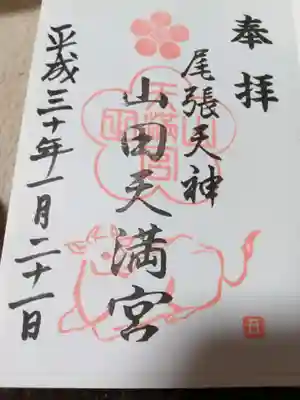 奉拝
尾張天神
山田天満宮
平成三十年一月二十一日